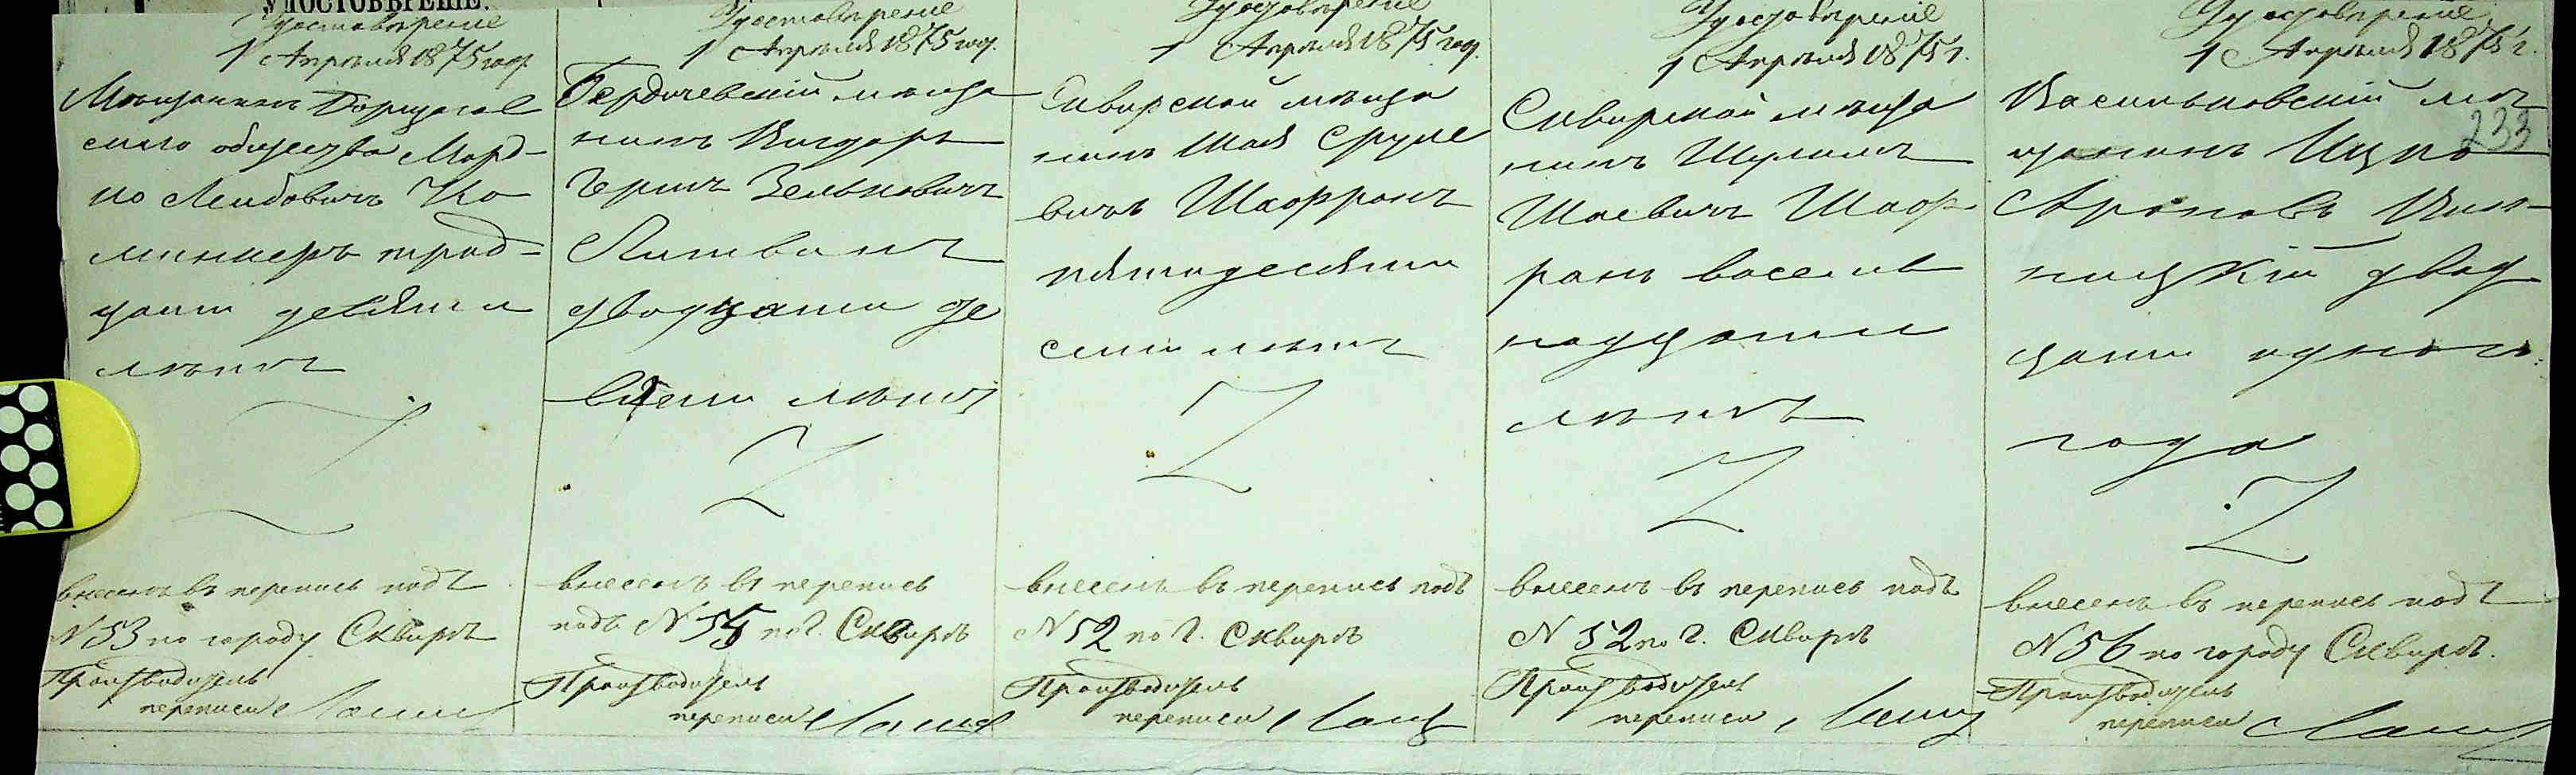 УДОСТОВѢРЕНІЕ.
Удостовѣреніе
1 Апрѣля 1875 год.
Мѣщанинъ
скаго общества Морд-
ко Лейбовичъ Ко
трид-
цати девяти
лѣтъ
внесенъ въ перепись подъ
N 53 по городу Сквирѣ
Производитель
переписи
Удостовѣреніе
1 Апрѣля 1875 год.
Бердичевскій мѣща
нинъ
Гершъ Зельковичъ
Литванъ
двадцати де
вяти лѣтъ
внесенъ въ перепись
подъ N по г. Сквирѣ
Производитель
переписи
Удостовѣреніе
1 Апрѣля 1875 год.
Сквирскій мѣща
нинъ Шая Сруле
вичъ Шафранъ
пятидесяти
семи лѣтъ
внесенъ въ перепись подъ
N 52 по г. Сквирѣ
Производитель
переписи
Удостовѣреніе
1 Апрѣля 1875 г.
Сквирскій мѣща
нинъ Шулимъ
Шаевичъ Шаф
ранъ восем
надцати
лѣтъ
внесенъ въ перепись подъ
N 52 по г. Сквирѣ
Производитель
переписи
Удостовѣреніе
1 Апрѣля 1875 г.
233
Васильковскій мѣ
щанинъ Ицко
Ароновъ
двад
цати одного
года
внесенъ въ перепись подъ
N 56 по городу Сквирѣ.
Производитель
переписи